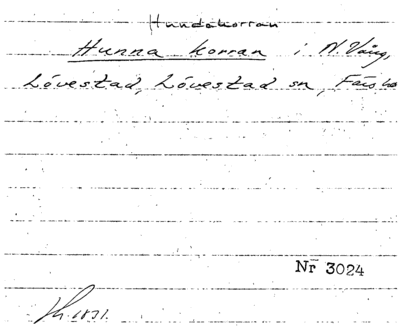 Hundakorran
Hunna korran i N. Vång,
Lövestad, Lövestad sn, Färs hd
Nr 3024